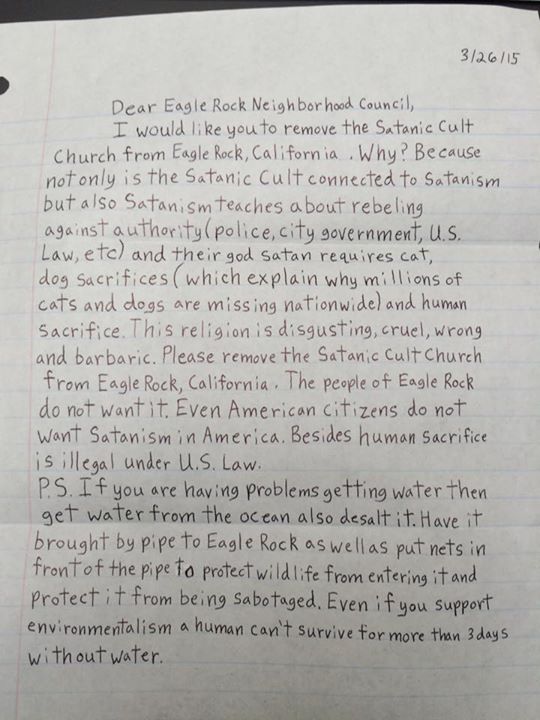 3/26/15
Dear Eagle Rock Neighborhood Council,
I would like you to remove the Satanic Cult
Church from Eagle Rock, California. Why? Because
not only is the Satanic Cult connected to Satanism
but also Satanism teaches about rebeling
against authority (police, city government, U.S.
Law, etc) and their god satan requires cat,
dog sacrifices (which explain why millions of
cats and dogs are missing nationwide) and human
sacrifice. This religion is disgusting, cruel, wrong
and barbaric. Please remove the Satanic Cult Church
from Eagle Rock, California. The people of Eagle Rock
do not want it. Even American citizens do not
want Satanism in America. Besides human sacrifice
is illegal under U.S. Law.
P.S. If you are having problems getting water then
get water from the ocean also desalt it. Have it
brought by pipe to Eagle Rock as well as put nets in
front of the pipe to protect wildlife from entering it and
protect it from being sabotaged. Even if you support
environmentalism a human can't survive for more than 3 days
without water.